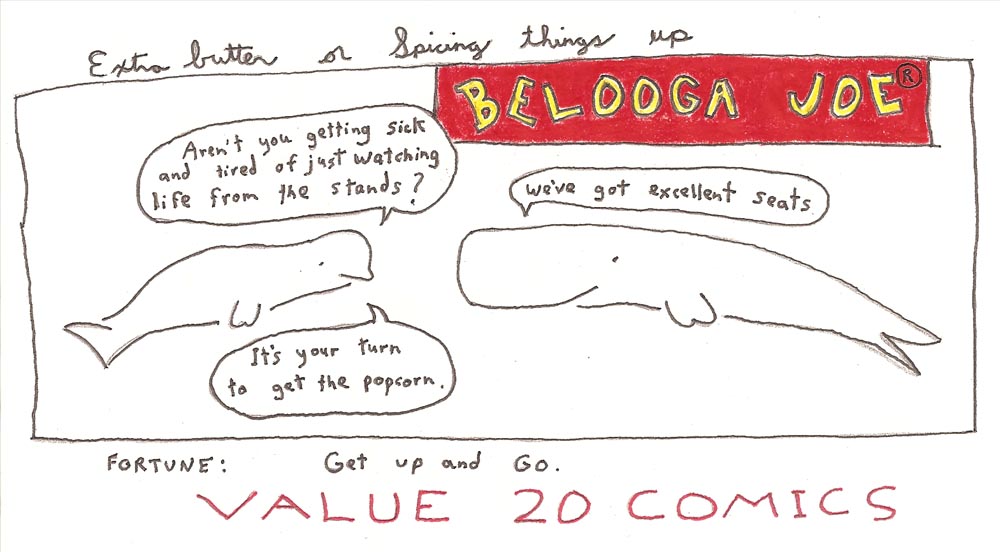 Extra butter or Spicing things up
BELOOGA JOE®
Aren't you getting sick
and tired of just watching
life from the stands?
We've got excellent seats.
It's your turn
to get the popcorn.
FORTUNE: Get up and Go.
VALUE 20 COMICS